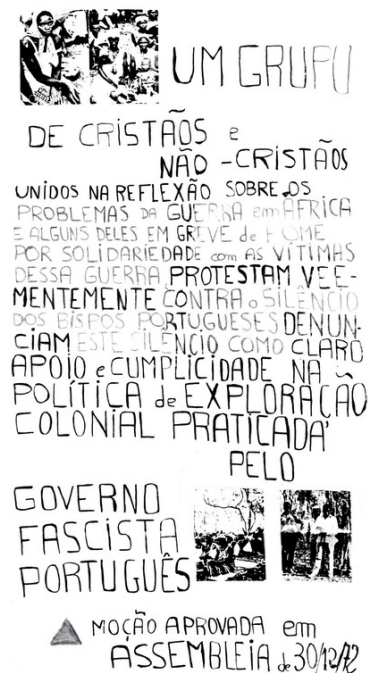 UM GRUPO
DE CRISTÃOS e
NÃO-CRISTÃOS
UNIDOS NA REFLEXÃO SOBRE OS
PROBLEMAS DA GUERRA em AFRICA
E ALGUNS DELES EM GREVE de FOME
POR SOLIDARIEDADE com AS VÍTIMAS
DESSA GUERRA PROTESTAM VEE-
MENTEMENTE CONTRA o SILÊNCIO
DOS BISPOS PORTUGUESES DENUN-
CIAM ESTE SILENCIO COMO CLARO
APOIO e CUMPLICIDADE NA
POLÍTICA de EXPLORAÇÃO
COLONIAL PRATICADA
PELO
GOVERNO
FASCISTA
PORTUGUÊS
MOÇÃO APROVADA em
ASSEMBLEIA de 30/12/72